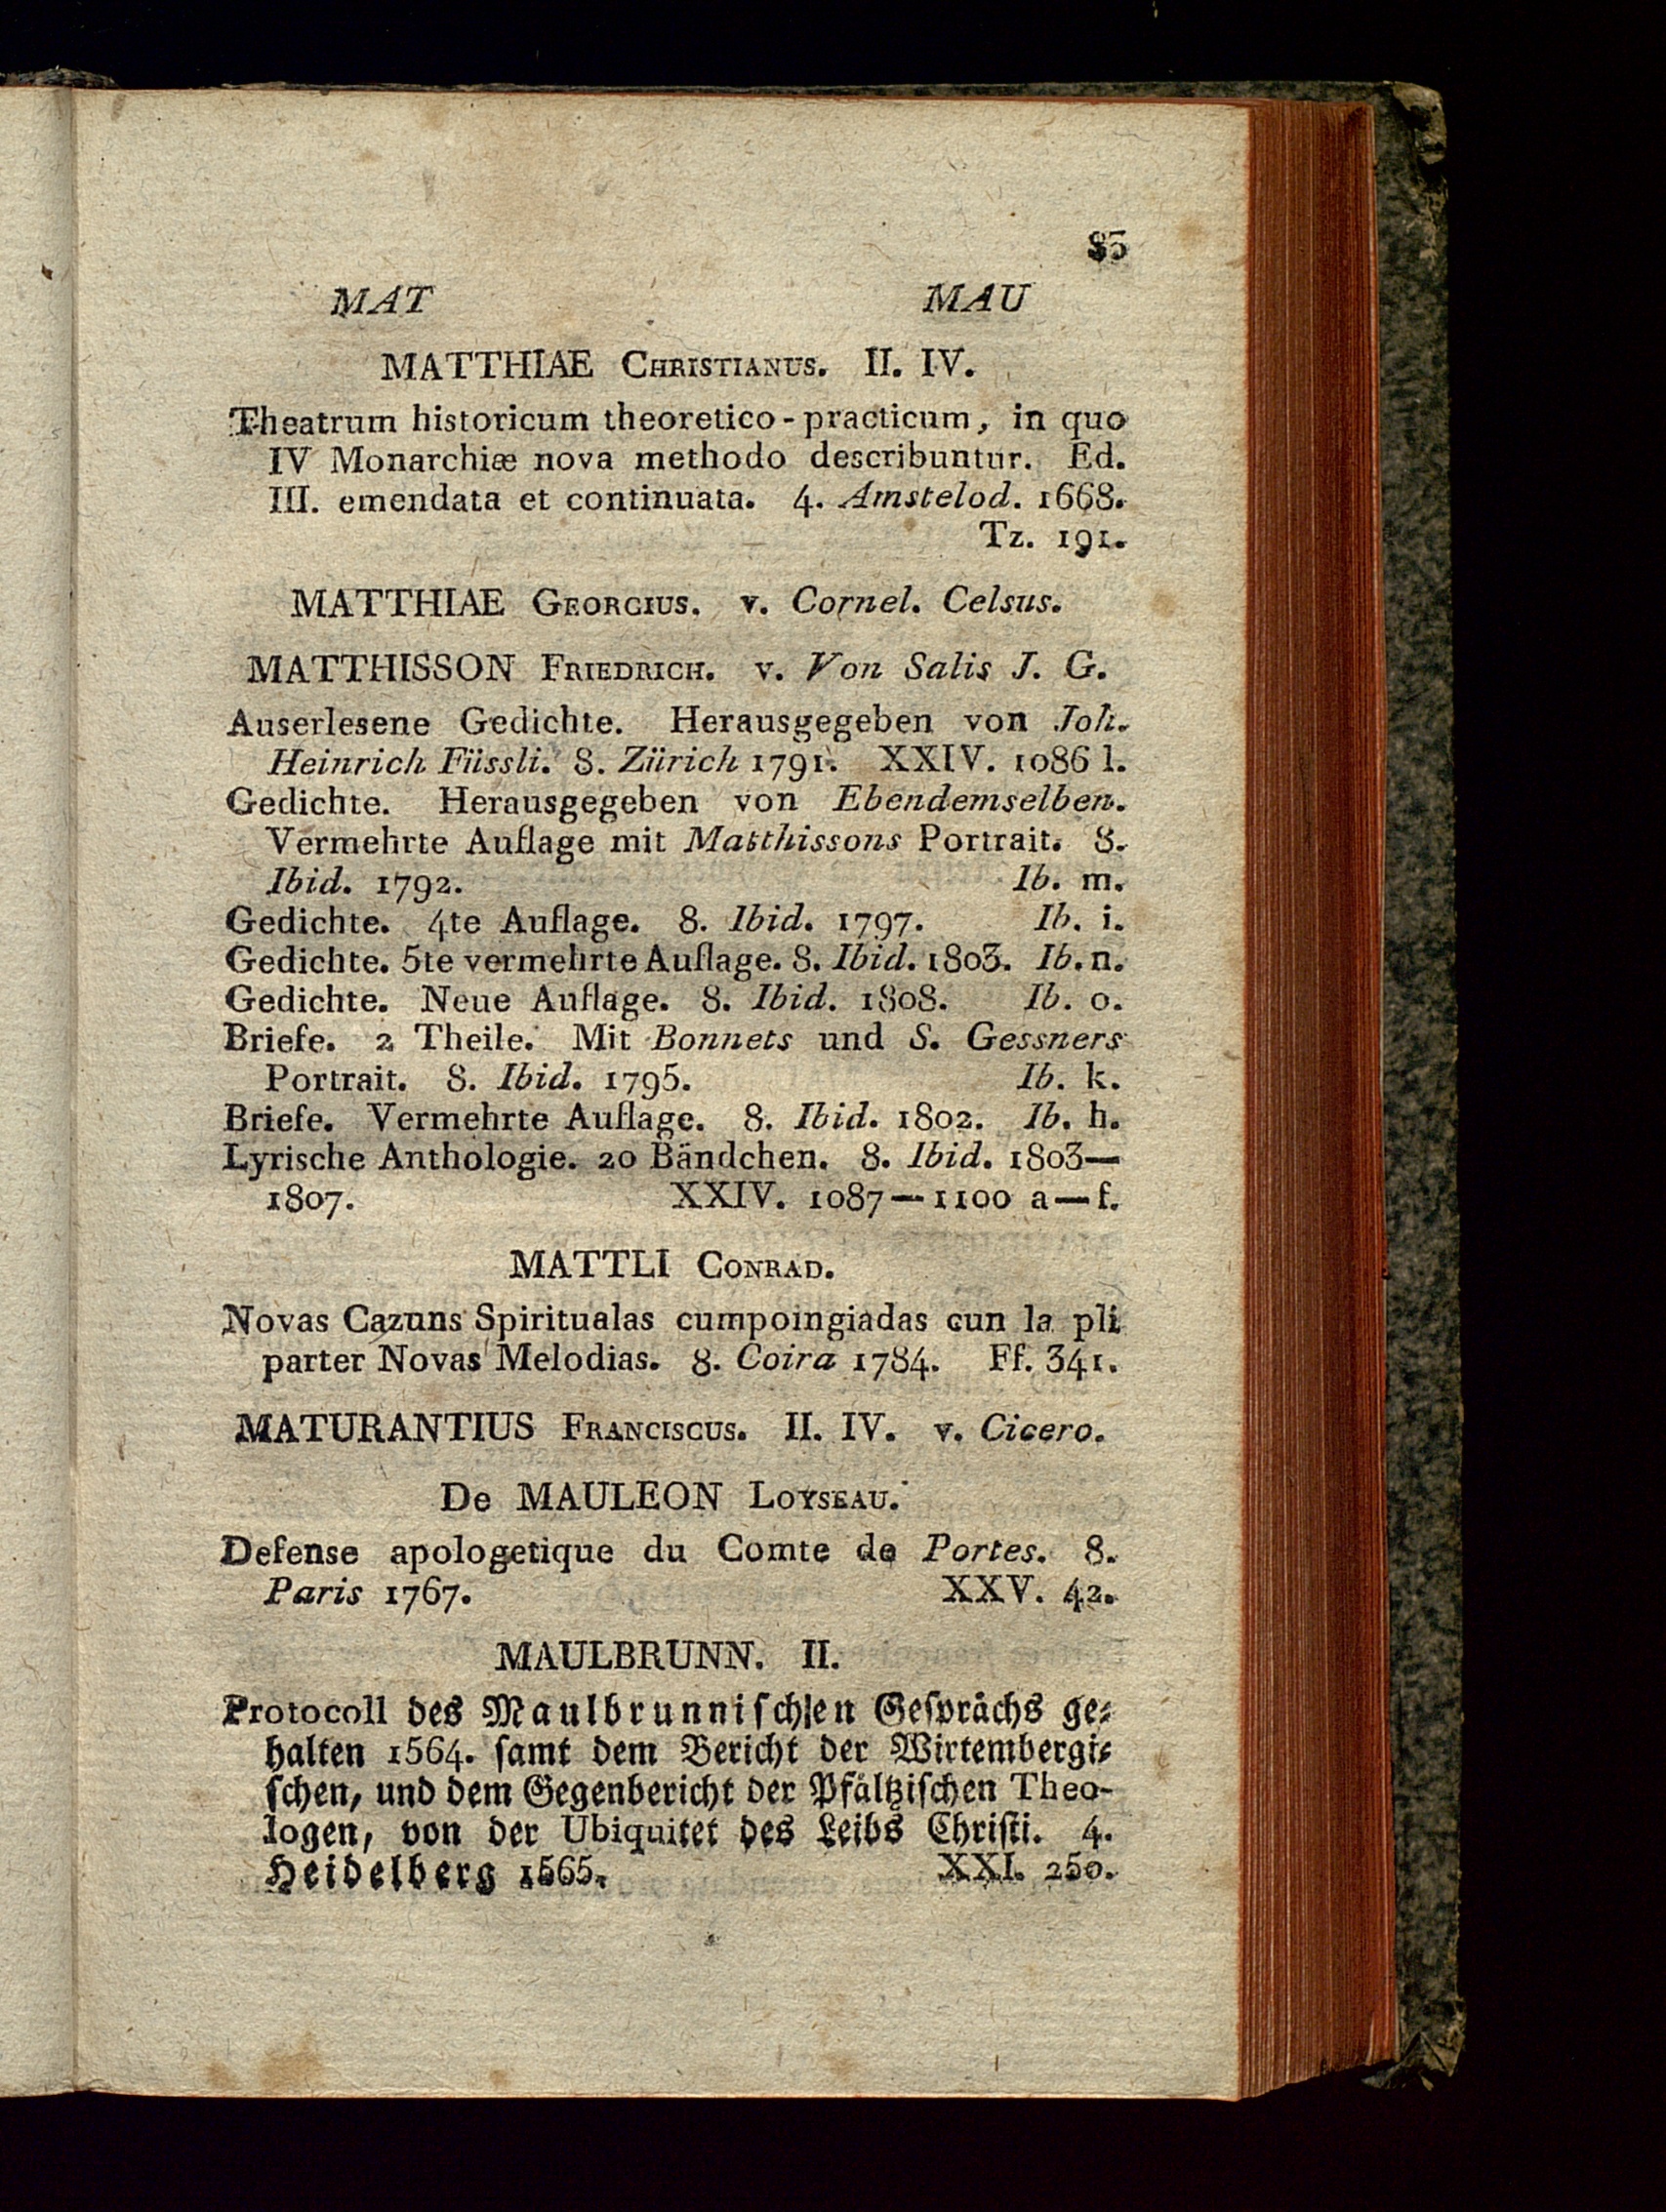 85
MAT MAU
MATTHIAE CHRISTIANUS. II. IV.
Theatrum historicum theoretico-practicum, in quo
IV Monarchiæ nova methodo describuntur. Ed.
III. emendata et continuata. 4. Amstelod. 1668.
Tz. 191.
MATTHIAE GEORGIUS. v. Cornel. Celsus.
MATTHISSON FRIEDRICH. v. Von Salis J. G.
Auserlesene Gedichte. Herausgegeben von Joh.
Heinrich Füssli. 8. Zürich 1791. XXIV. 1086 l.
Gedichte. Herausgegeben von Ebendemselben.
Vermehrte Auflage mit Matthissons Portrait. 8.
Ibid. 1792. Ib. m.
Gedichte. 4te Auflage. 8. Ibid. 1797. Ib. i.
Gedichte. 5te vermehrte Auflage. 8. Ibid. 1803. Ib. n.
Gedichte. Neue Auflage. 8. Ibid. 1808. Ib. o.
Briefe. 2 Theile. Mit Bonnets und S. Gessners
Portrait. 8. Ibid. 1795. Ib. k.
Briefe. Vermehrte Auflage. 8. Ibid. 1802. Ib. h.
Lyrische Anthologie. 20 Bändchen. 8. Ibid. 1803—
1807. XXIV. 1087—1100 a—f.
MATTLI CONRAD.
Novas Cazuns Spiritualas cumpoingiadas cun la pli
parter Novas Melodias. 8. Coira 1784. Ff. 341.
MATURANTIUS FRANCISCUS. II. IV. v. Cicero.
De MAULEON LOYSEAU.
Defense apologetique du Comte de Portes. 8.
Paris 1767. XXV. 42.
MAULBRUNN. II.
Protocoll des Maulbrunnischen Gesprächs ge-
halten 1564. samt dem Bericht der Wirtembergi-
schen, und dem Gegenbericht der Pfältzischen Theo-
logen, von der Ubiquitet des Leibs Christi. 4.
Heidelberg 1565. XXI. 250.